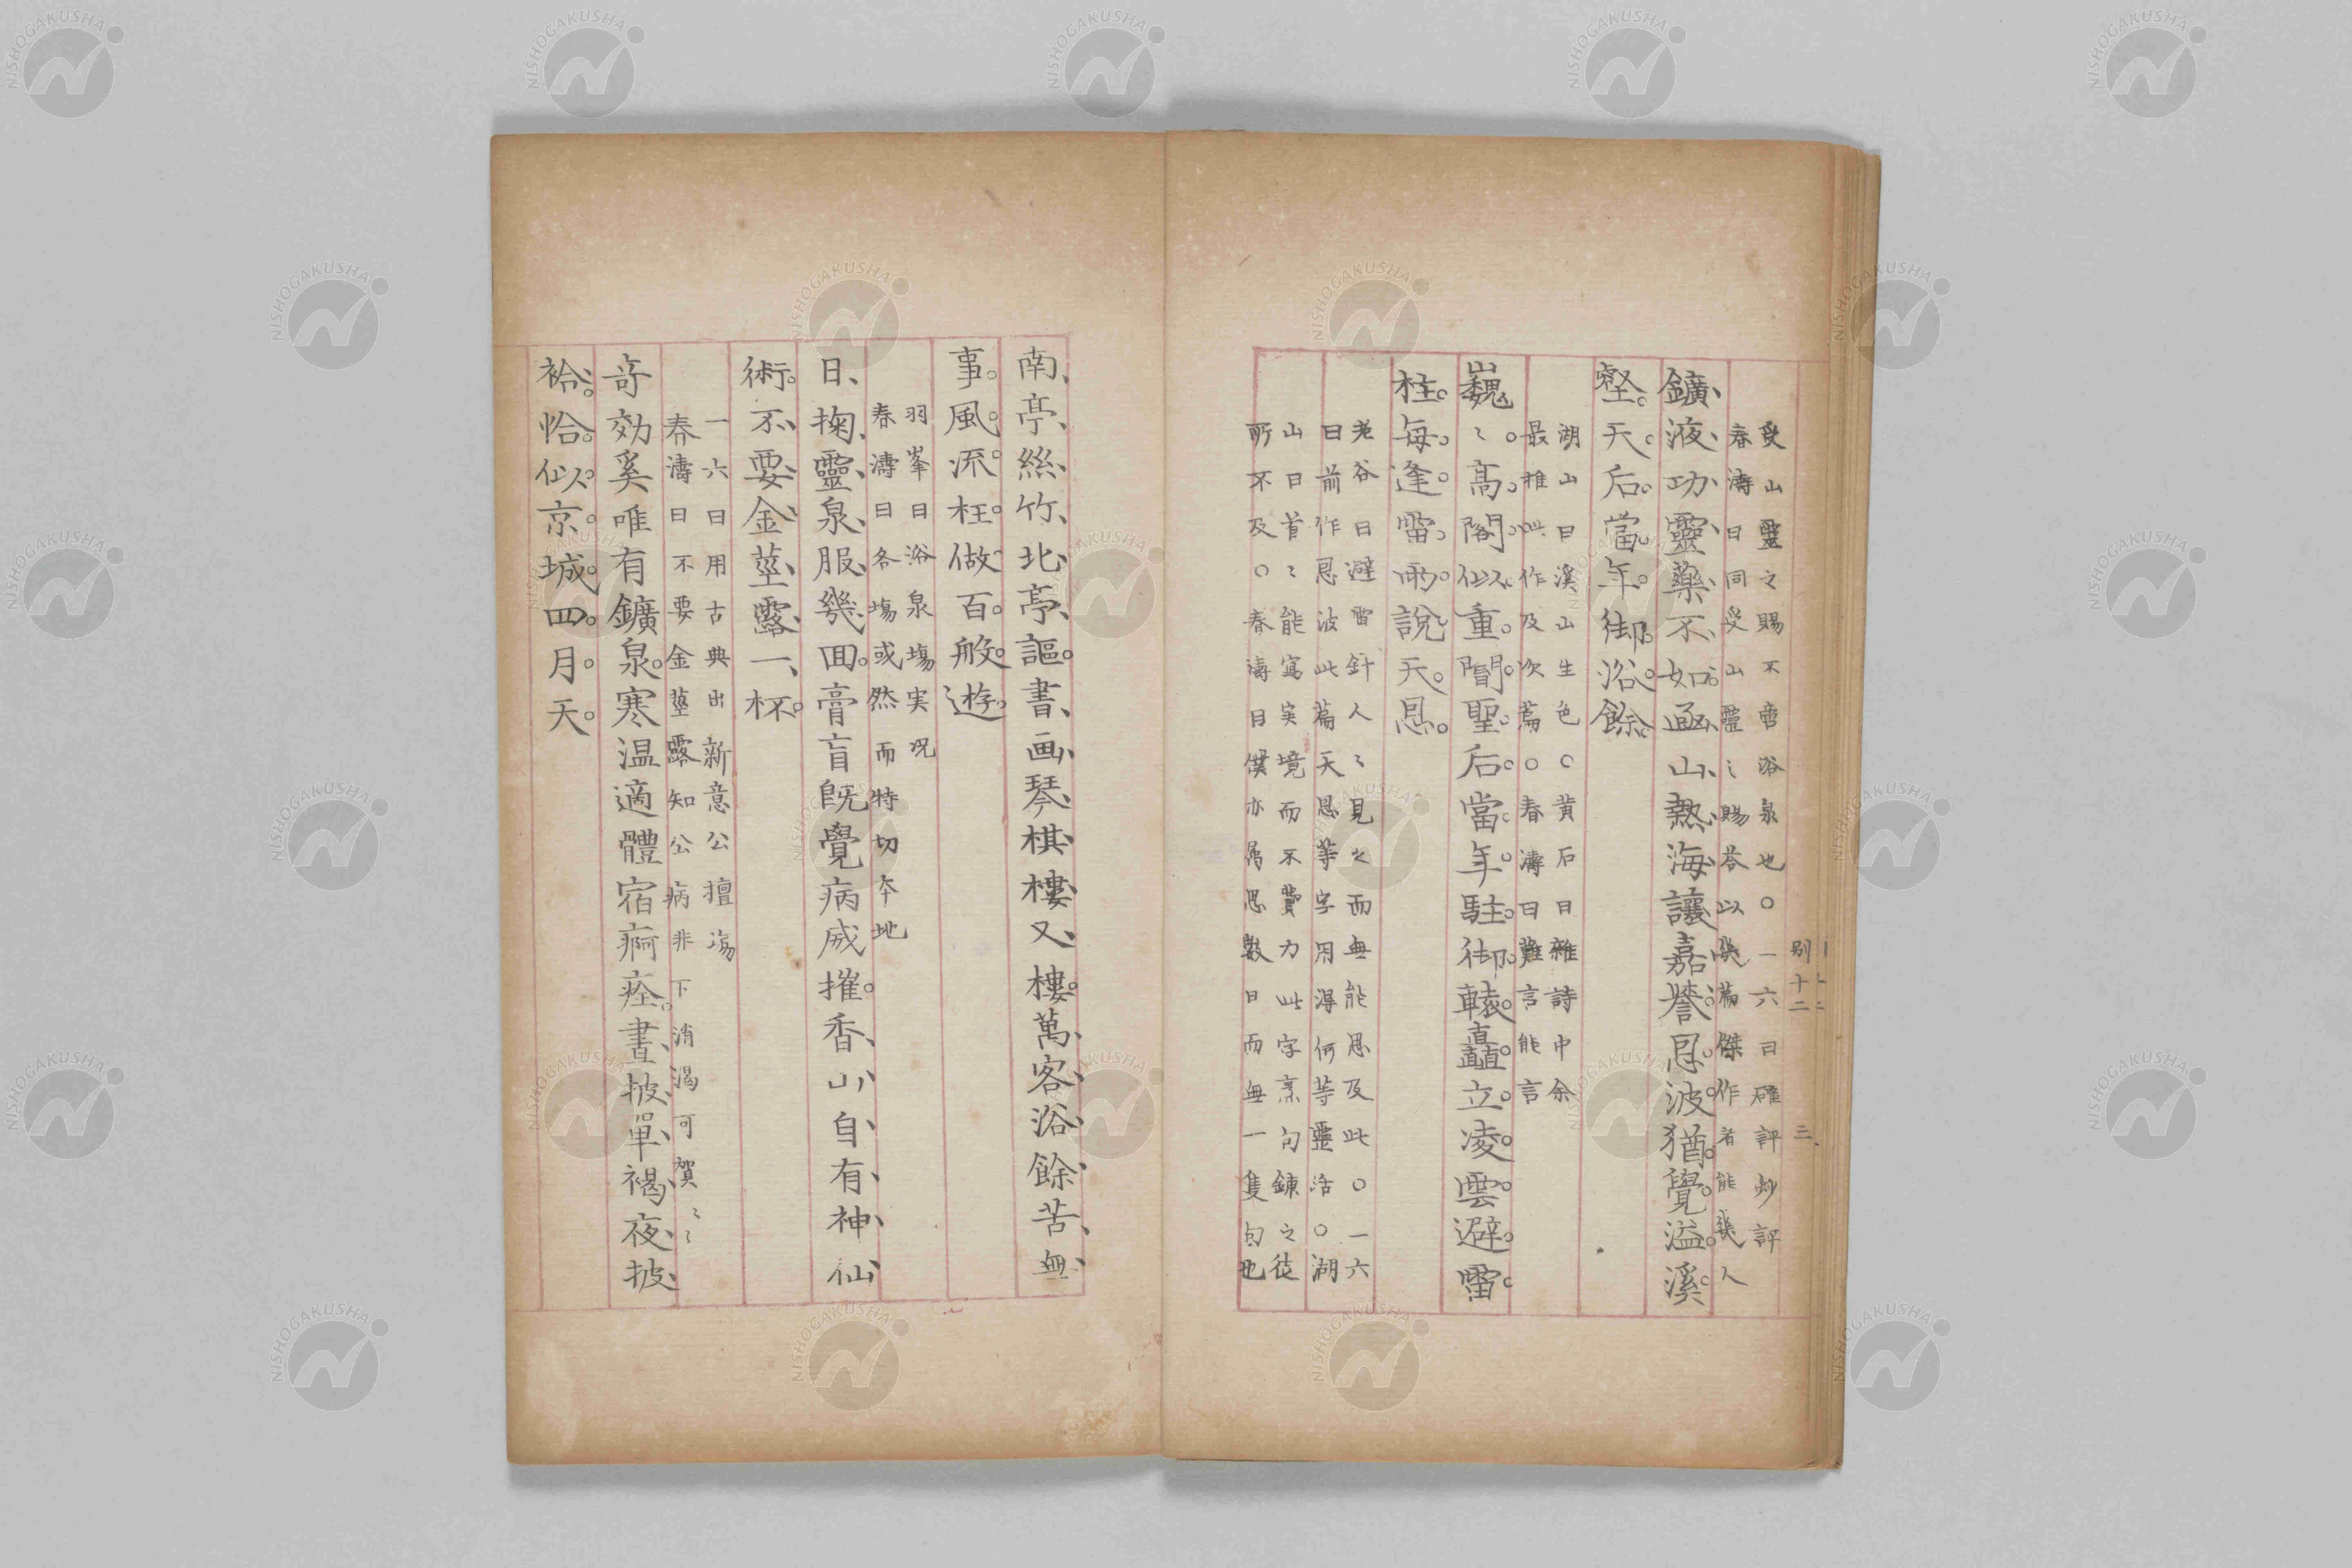 受山靈之賜不啻浴泉也○一六曰確評妙評
春濤曰同受山靈之賜荅以奨篇傑作者能奨人
鑛液功靈藥不如凾山熱海讓嘉譽恩波猶覺溢溪
壑天后當年御浴餘
湖山曰溪山生色○黄石曰雜詩中余
最推此作及次篇○春濤曰難言能言
巍〻高閣似重閽聖后當年駐御轅矗立凌雲避雷
柱每逢雷雨說天恩
老谷曰避雷針人〻見之而無能思及此○一六
曰前作恩波此篇天恩等字用得何等靈活○湖
山曰首〻能寫実境而不費力此字烹句錬之徒
所不及○春濤曰僕亦屬思數日而無一隻句也
南亭絲竹北亭謳書画琴棋樓又樓萬客浴餘苦無
事風流枉做百般遊
羽峯曰浴泉塲実况
春濤曰各塲或然而特切夲地
日掬靈泉服幾回膏盲既覺病威摧香山自有神仙
術不要金莖露一杯
一六曰用古典出新意公擅塲
春濤曰不要金莖露知公病非下消渴可賀〻〻
奇効奚唯有鑛泉寒温適體宿痾痊晝披單褐夜披
袷恰似京城四月天
別十二
三